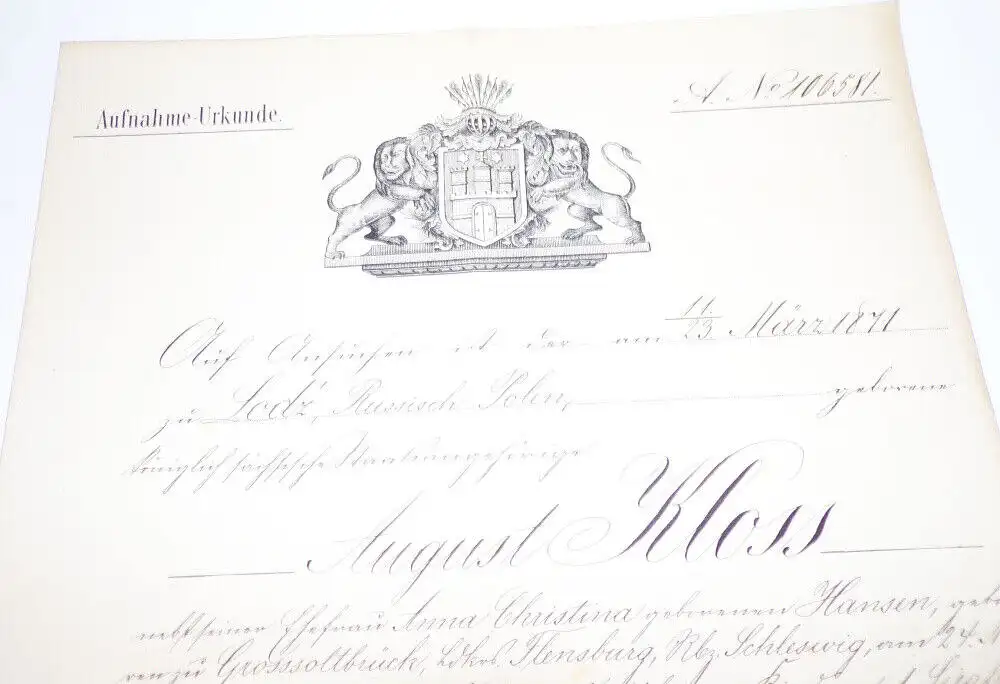 Aufnahme-Urkunde.
A. No 106581.
Auf Ansuchen ist der am 11./23. März 1871
zu Lodź, Russisch Polen, geborene
königlich sächsische Staatsangehörige
August Kloss
nebst seiner Ehefrau Anna Christina geborenen Hansen, gebo
ren zu Grosssoltbrück, Ldkrs. Flensburg, Rbz. Schleswig, am 24.